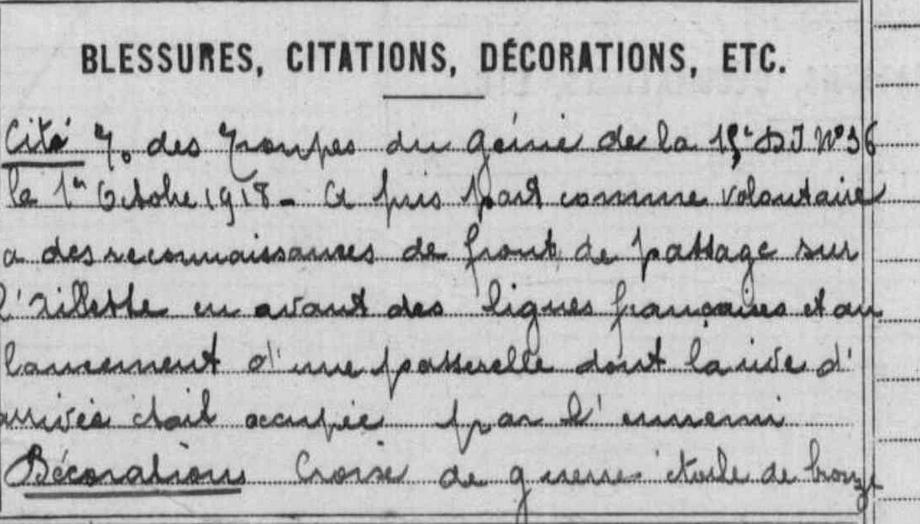 BLESSURES, CITATIONS, DÉCORATIONS, ETC.
Cité O. des Troupes du génie de la 15e D.I N°36
le 1er Octobre 1918 - A pris part comme volontaire
a des reconnaissances de front de passage sur
l'Ailette en avant des lignes françaises et au
lancement d'une passerelle dont la rive d'
arrivée était occupée par l'ennemi
Décorations Croix de guerre étoile de bronze